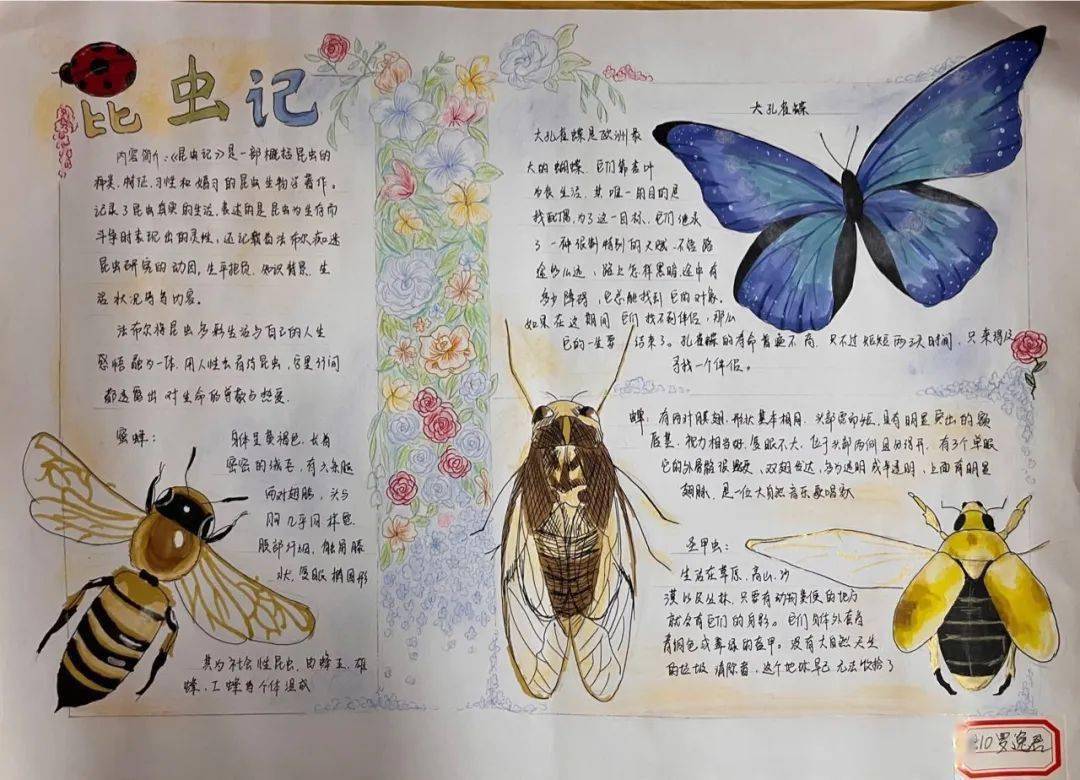 昆虫记
内容简介:《昆虫记》是一部概括昆虫的
种类、特征、习性和婚习的昆虫生物学著作。
记录了昆虫真实的生活,表达的是昆虫为生存而
斗争时表现出的灵性,还记载着法布尔痴迷
昆虫研究的动因,生平抱负,知识背景,生
活状况等等内容。
法布尔将昆虫多彩生活与自己的人生
感悟融为一体,用人性去看待昆虫,字里行间
都透露出对生命的尊敬与热爱.
蜜蜂:
身体呈黄褐色,长有
密密的绒毛,有六条腿
两对翅膀,头与
胸几乎同样宽.
腹部纤细,触角膝
状,复眼椭圆形
其为社会性昆虫,由蜂王、雄
蜂,工蜂等个体组成
大孔雀蝶
大孔雀蝶是欧洲最
大的蝴蝶,它们靠杏叶
为食生活,其唯一的目的是
找配偶,为了这一目标,它们继承
了一种很特别的天赋,不管路
途多么远,路上怎样黑暗,途中有
多少障碍,它总能找到它的对象.
如果在这期间它们找不到伴侣,那么
它的一生要结束了。孔雀蝶的寿命普遍不高,只不过短短两三天时间,只来得及
寻找一个伴侣。
蝉:有两对膜翅,形状基本相同,头部宽而短,具有明显突出的额
唇基,视力相当好,复眼不大,位于头部两侧且分得开,有3个单眼
它的外骨骼很坚硬,双翅发达,多为透明或半透明,上面有明显
翅脉,是一位大自然音乐歌唱家
圣甲虫:
生活在草原,高山,沙
漠以及丛林,只要有动物粪便的地方
就会有它们的身影。它们身体外有着
青铜色或翠绿的盔甲。没有大自然天生
的垃圾清除者,这个地球早已无法饮
210罗逸君